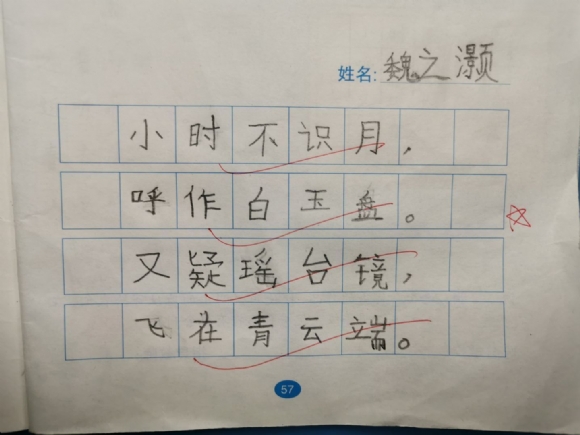 姓名: 魏之灏
小时不识月，
呼作白玉盘。
又疑瑶台镜，
飞在青云端。
57